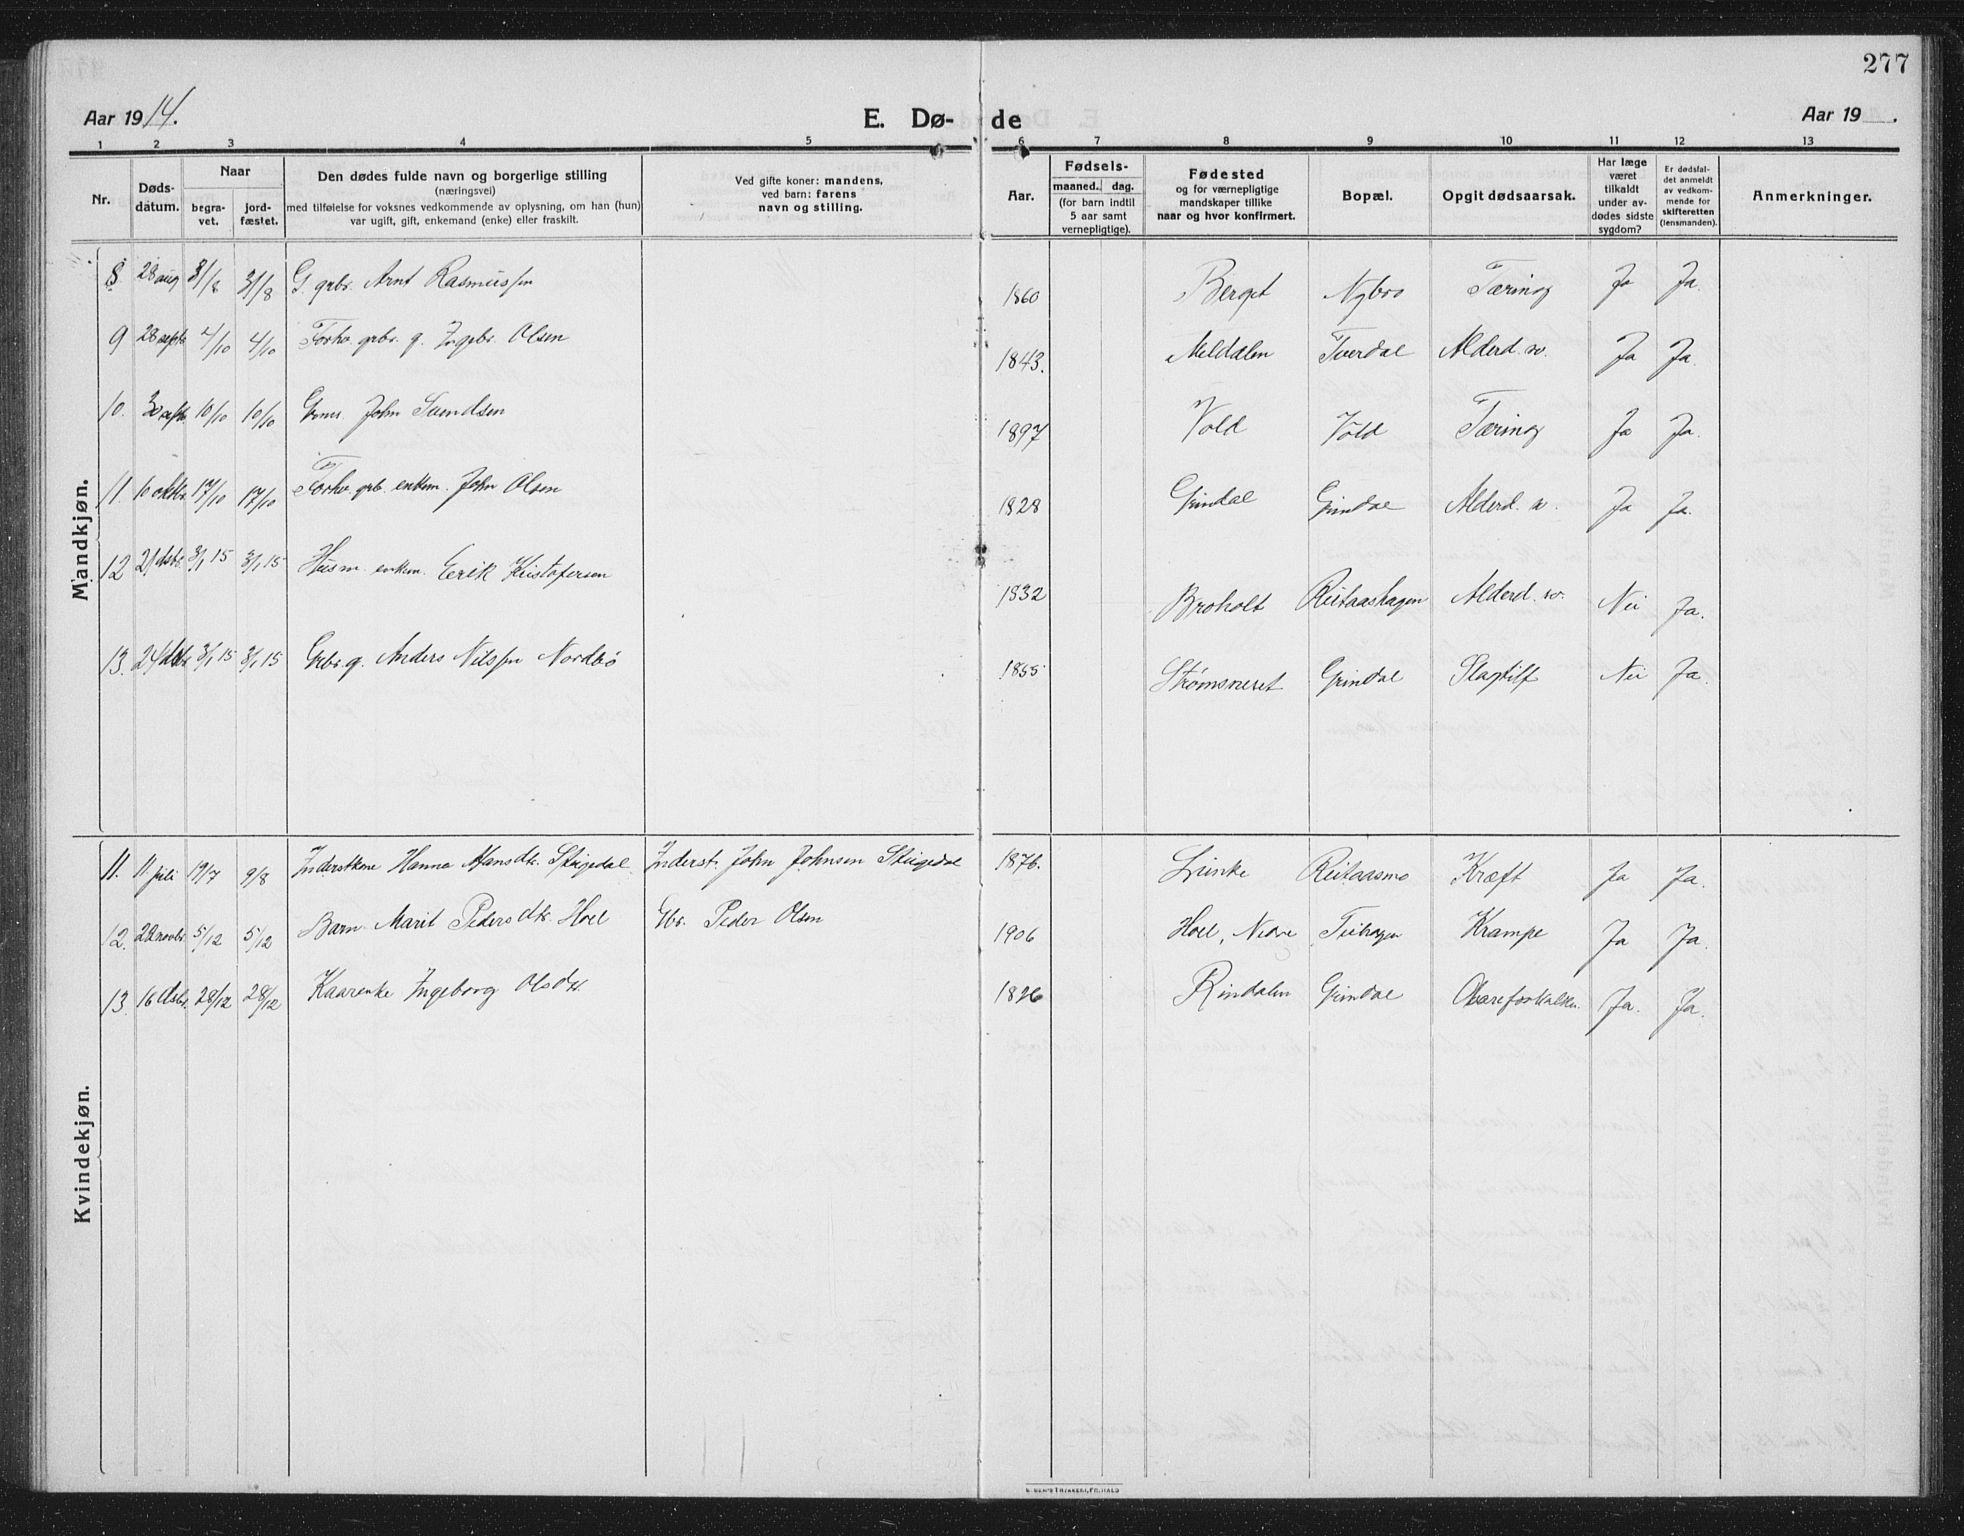 277
Aar 1914.
E. Dø-
de
Aar 19 .
1 2 3 4 5 6 7 8 9 10 11 12 13
Nr.
Døds-
datum.
Naar
begra-
vet.
jord-
fæstet.
Den dødes fulde navn og borgerlige stilling
(næringsvei)
med tilføielse for voksnes vedkommende av oplysning, om han (hun)
var ugift, gift, enkemand (enke) eller fraskilt.
Ved gifte koner: mandens,
ved barn: farens
navn og stilling.
Aar.
Fødsels-
maaned. dag.
(for barn indtil
5 aar samt
vernepligtige).
Fødested
og for værnepligtige
mandskaper tillike
naar og hvor konfirmert.
Bopæl.
Opgit dødsaarsak.
Har læge
været
tilkaldt
under av-
dødes sidste
sygdom?
Er dødsfal-
det anmeldt
av vedkom-
mende for
skifteretten
(lensmanden).
Anmerkninger.
Mandkjøn.
8 28 aug 31/8 31/8 G. grbr. Arnt Rasmussen 1860 Berget Nybro Tæring Ja Ja.
9 28 septb 4/10 4/10 Forhv. grbr. g. Ingebr. Olsen 1843. Meldalen Tverdal Alderd. sv. Ja Ja.
10. 30 septb 10/10 10/10 John Svendsen 1897 Vold Vold Tæring Ja Ja.
11. 10 oktbr. 17/10 17/10 Forhv. grb. enkem. John Olsen 1828 Grindal Grindal Alderd. sv. Ja Ja.
12 21 dsbr. 3/1 15 3/1 15 Husm. enkem. Erik Kristofersen 1832 Broholt Reitaashagen Alderd. sv. Nei Ja.
13. 24 dsbr 3/1 15 3/1 15 Grbr. g. Anders Nilssen Nordbø 1855 Strømsneset Grindal Slagtilf Nei Ja.
Kvindekjøn.
11. 11 juli 19/7 9/8 Inderstkone Hanna Hansdtr. Stigedal. Inderst. John Johnsen Stigedal 1876. Reitaasmo Kræft Ja Ja.
12. 22 novbr. 5/12 5/12 Barn Marit Pedersdtr. Hoel Gbr. Peder Olsen 1906 Hoel, Nedre Krampe Ja Ja.
13. 16 dsbr. 28/12 28/12 Kaarenke Ingeborg Olsdtr. 1826 Rindalen Grindal Ja. Ja.